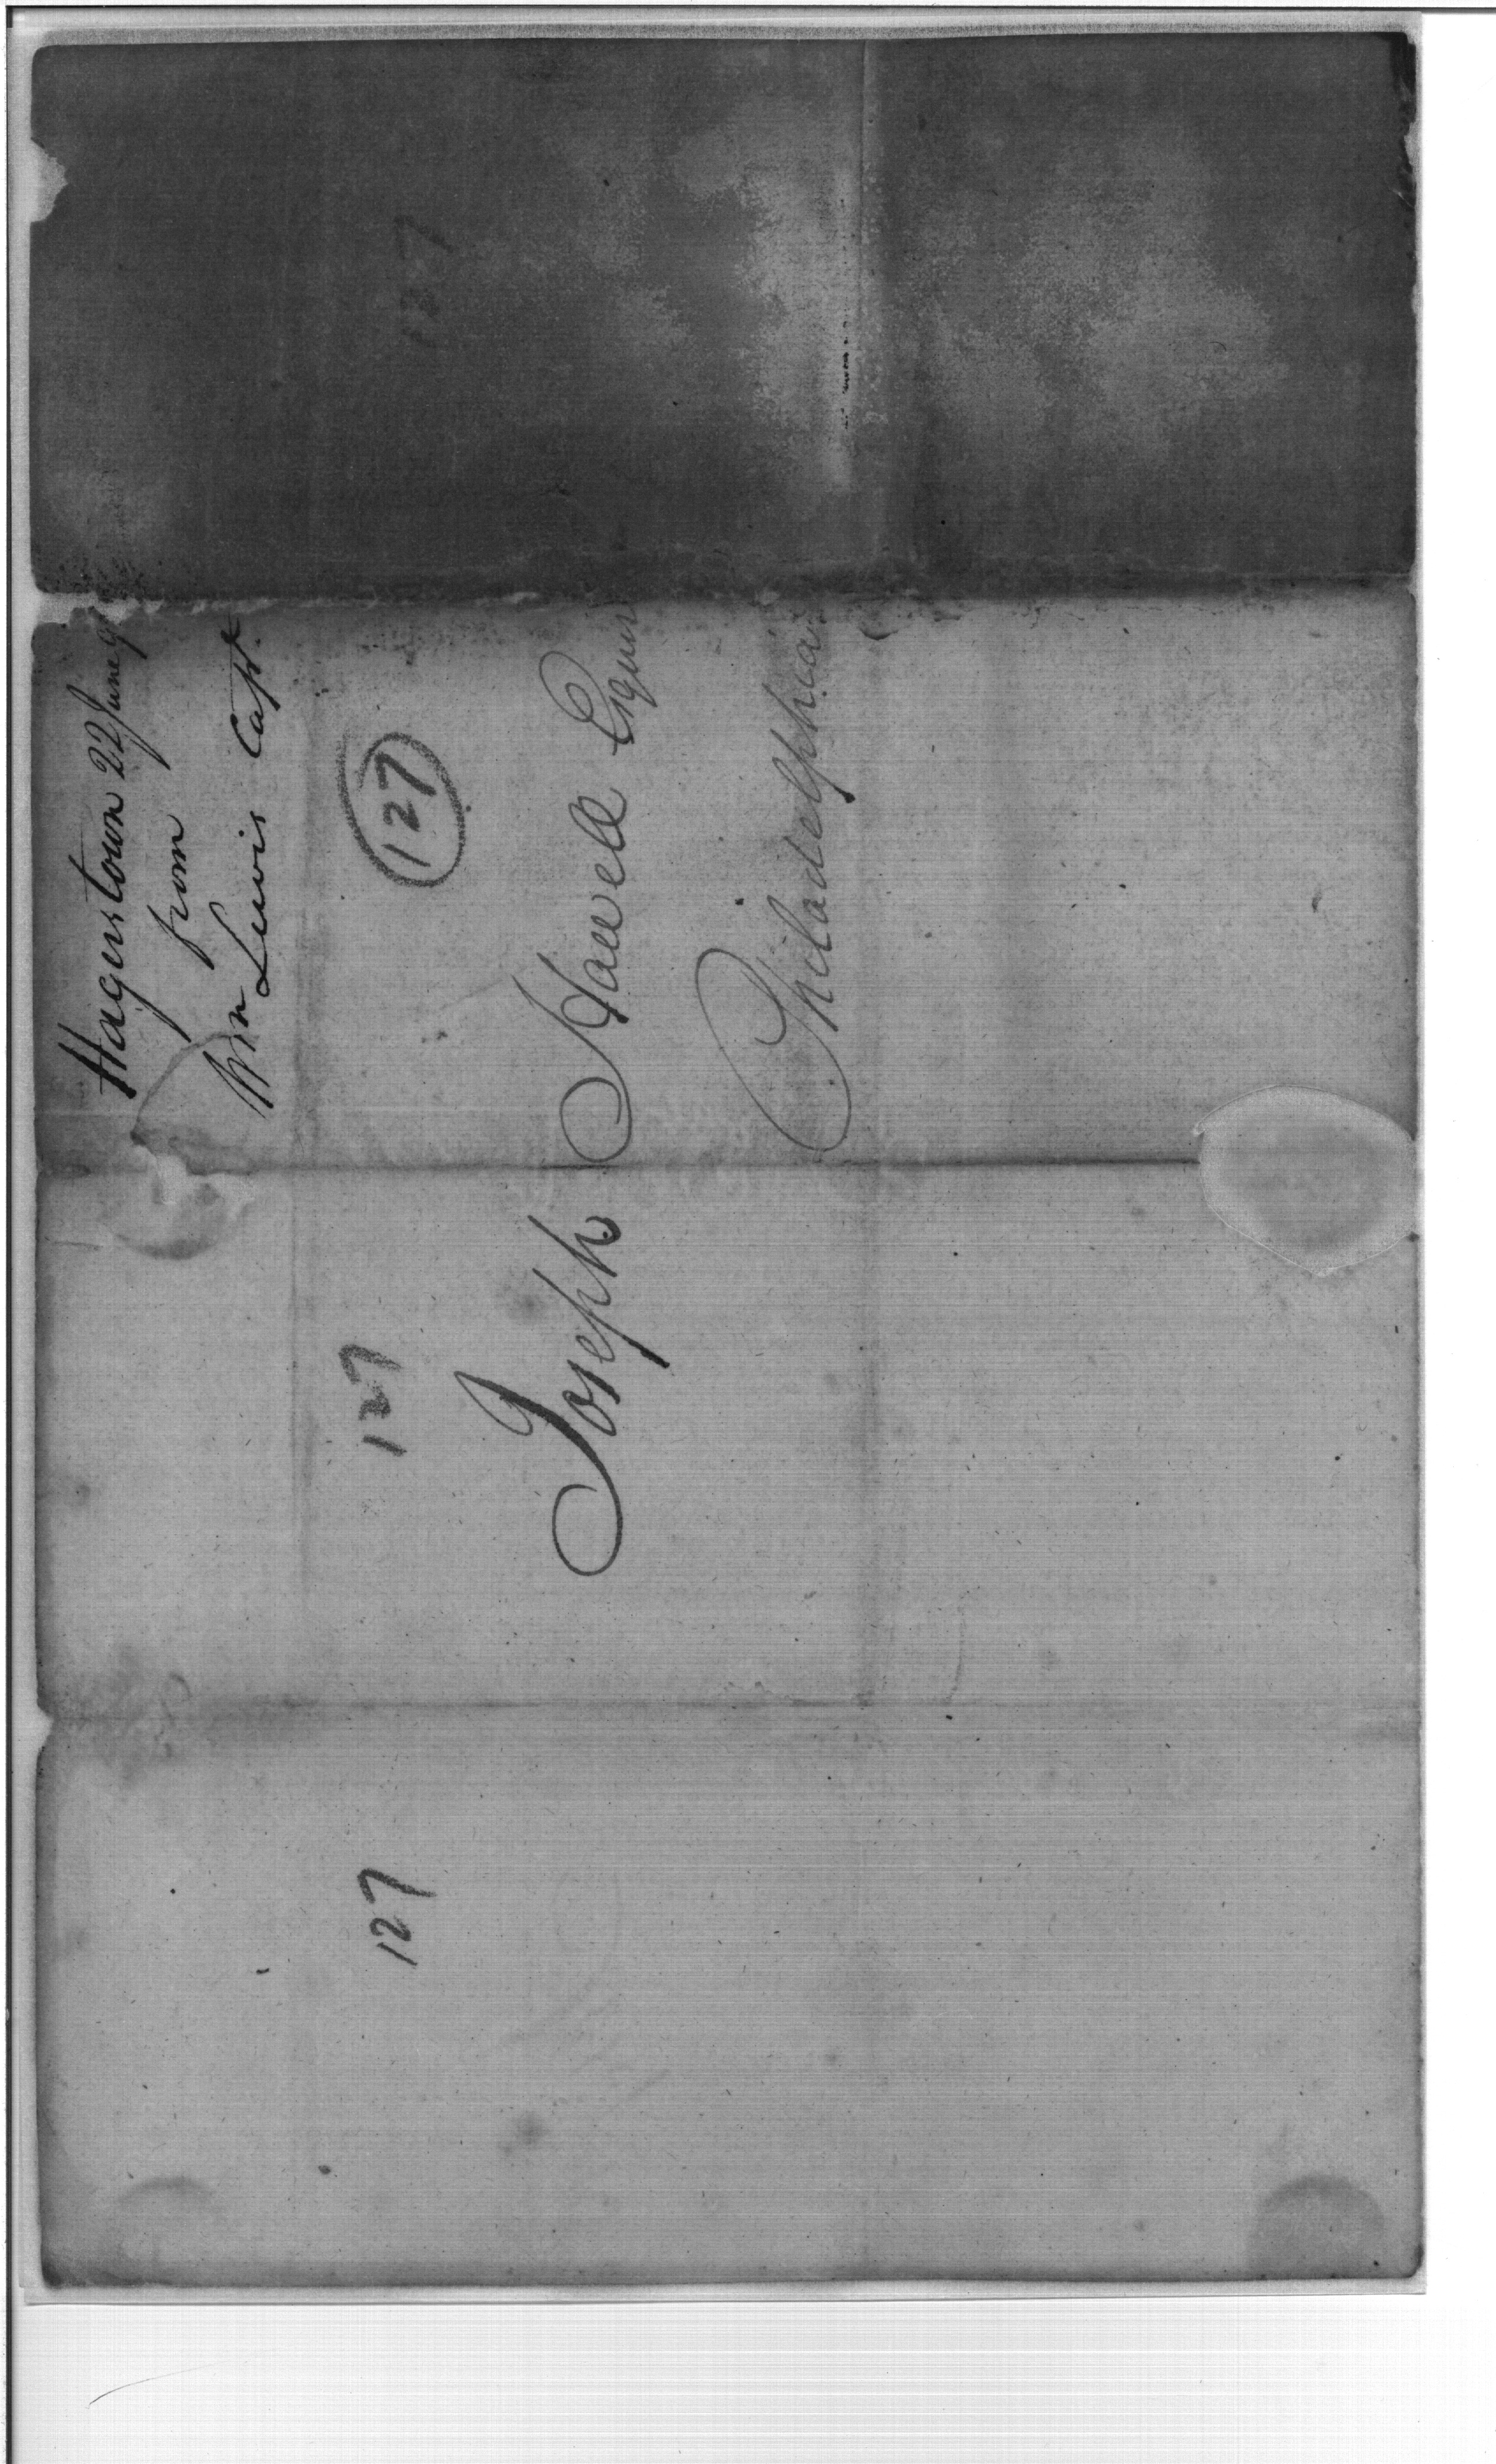 Hagerstown 22 June 9
from
Wm Lewis Capt.
127
127
127
127
Joseph Howell Esquir
Philadelphia